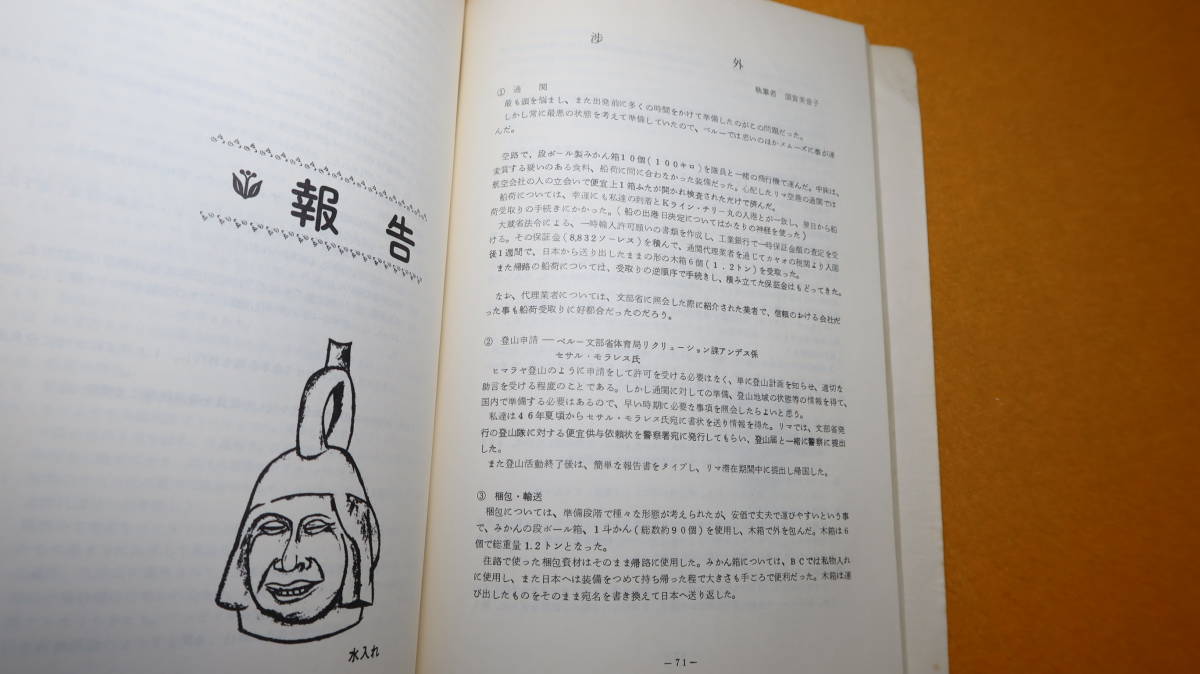 報告
水入れ
渉外
執筆者
① 通関
最も頭を悩まし、また出発前に多くの時間をかけて準備したのがこの問題だった。
しかし常に最悪の状態を考えて準備していたので、ペルーでは思いのほかスムーズに事が運
んだ。
空路で、段ボール製みかん箱10個(100キロ)を隊員と一緒の飛行機で運んだ。中味は、
変質する疑いのある食料、船荷に間に合わなかった装備だった。心配したリマ空港の通関では
航空会社の人の立会いで便宜上1箱ふたが開かれ検査されただけで済んだ。
船荷については、幸運にも私達の到着とKライン・チリー丸の入港とが一致し、翌日から船
荷受取りの手続きにかかった。(船の出港日決定についてはかなりの神経を使った)
大蔵省法令による、一時輸入許可願いの書類を作成し、工業銀行で一時保証金額の査定を受
ける。その保証金(8,832ソーレス)を積んで、通関代理業者を通じてカヤオの税関より入国
後1週間で、日本から送り出したままの形の木箱6個(1.2トン)を受取った。
また帰路の船荷については、受取りの逆順序で手続きし、積み立てた保証金はもどってきた。
なお、代理業者については、文部省に照会した際に紹介された業者で、信頼のおける会社だ
った事も船荷受取りに好都合だったのだろう。
② 登山申請――ペルー文部省体育局リクリューション課アンデス係
セサル・モラレス氏
ヒマラヤ登山のように申請をして許可を受ける必要はなく、単に登山計画を知らせ、適切な
助言を受ける程度のことである。しかし通関に対しての準備、登山地域の状態等の情報を得て、
国内で準備する必要はあるので、早い時期に必要な事項を照会したらよいと思う。
私達は46年夏頃からセサル・モラレス氏宛に書状を送り情報を得た。リマでは、文部省発
行の登山隊に対する便宜供与依頼状を警察署宛に発行してもらい、登山届と一緒に警察に提出
した。
また登山活動終了後は、簡単な報告書をタイプし、リマ滞在期間中に提出し帰国した。
③ 梱包・輸送
梱包については、準備段階で種々な形態が考えられたが、安価で丈夫で運びやすいという事
で、みかんの段ボール箱、1斗かん(総数約90個)を使用し、木箱で外を包んだ。木箱は6
個で総重量1.2トンとなった。
往路で使った梱包資材はそのまま帰路に使用した。みかん箱については、BCでは私物入れ
に使用し、また日本へは装備をつめて持ち帰った程で大きさも手ごろで便利だった。木箱は運
び出したものをそのまま宛名を書き換えて日本へ送り返した。
－71－